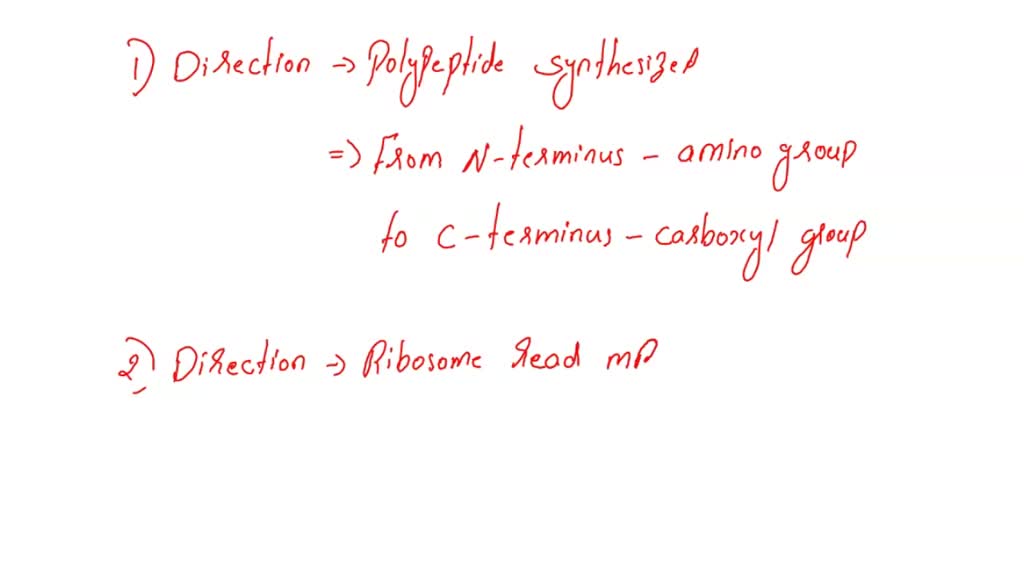 1) Direction → Polypeptide synthesized
=> From N-terminus - amino group
to C-terminus - carboxyl group
2) Direction → Ribosome read mR